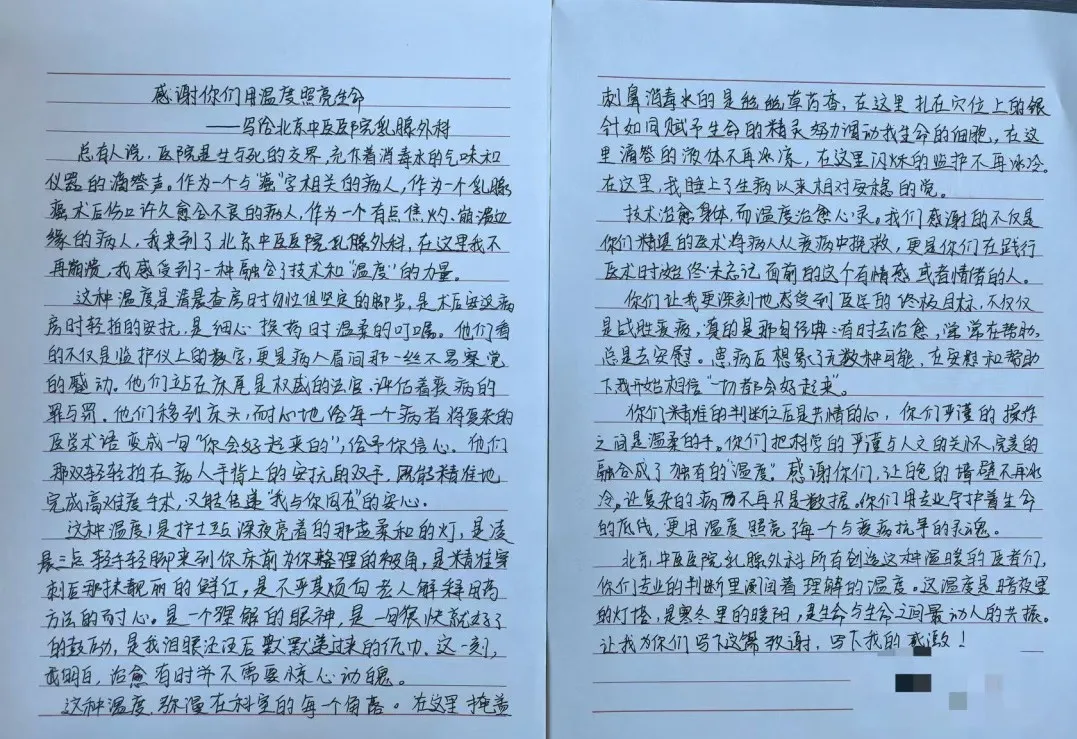 感谢你们用温度照亮生命
——写给北京中医医院乳腺外科
总有人说，医院是生与死的交界，充斥着消毒水的气味和
仪器的滴答声。作为一个与“癌”字相关的病人，作为一个乳腺
癌术后伤口许久愈合不良的病人，作为一个有点焦灼、崩溃边
缘的病人，我来到了北京中医医院乳腺外科，在这里我不
再崩溃，我感受到了一种融合了技术和“温度”的力量。
这种温度是清晨查房时匆忙但坚定的脚步，是术后安返病
房时轻拍的安抚，是细心换药时温柔的叮嘱。他们看
的不仅是监护仪上的数字，更是病人眉间那一丝不易察觉
的感动。他们站在床尾是权威的法官，评估着疾病的
罪与罚。他们移到床头，耐心地给每一个病者将复杂的
医学术语变成一句“你会好起来的”，给予你信心。他们
那双轻轻拍在病人手背上的安抚的双手，既能精准地
完成高难度手术，又能传递“我与你同在”的安心。
这种温度是护士站深夜亮着的那盏柔和的灯，是凌
晨三点轻手轻脚来到你床前为你整理的被角，是精准穿
刺后那抹靓丽的鲜红，是不厌其烦向老人解释用药
方法的耐心。是一个理解的眼神，是一句“很快就好了”
的鼓励，是我泪眼还没后默默递过来的纸巾。这一刻，
我明白，治愈有时并不需要惊心动魄。
这种温度弥漫在科室的每个角落。在这里掩盖
刺鼻消毒水的是丝丝草药香，在这里扎在穴位上的银
针如同赋予生命的精灵努力调动我生命的细胞，在这
里滴答的液体不再冰凉，在这里闪烁的监护不再冰冷
在这里，我睡上了生病以来相对安稳的觉。
技术治愈身体，而温度治愈心灵。我们感谢的不仅是
你们精湛的医术将病人从疾病中挽救，更是你们在践行
医术时始终未忘记面前的这个有情感或者情绪的人。
你们让我更深刻地感受到医学的终极目标，不仅仅
是战胜疾病，真的是那句经典：有时去治愈，常常在帮助，
总是去安慰。患病后想象了无数种可能，在安慰和帮助
下我开始相信“一切都会好起来”。
你们精准的判断位后是共情的心，你们严谨的操作
之间是温柔的手。你们把科学的严谨与人文的关怀，完美的
融合成了独有的“温度”。感谢你们，让白色的墙壁不再冰
冷。让复杂的病历不再只是数据。你们用专业守护着生命
的底线，更用温度照亮每一个与癌病抗争的灵魂。
北京中医医院乳腺外科所有创造这种温暖的医者们，
你们专业的判断里浸润着理解的温度。这温度是暗夜里
的灯塔，是寒冬里的暖阳，是生命与生命之间最动人的共振。
让我为你们写下这篇致谢，写下我的感激！